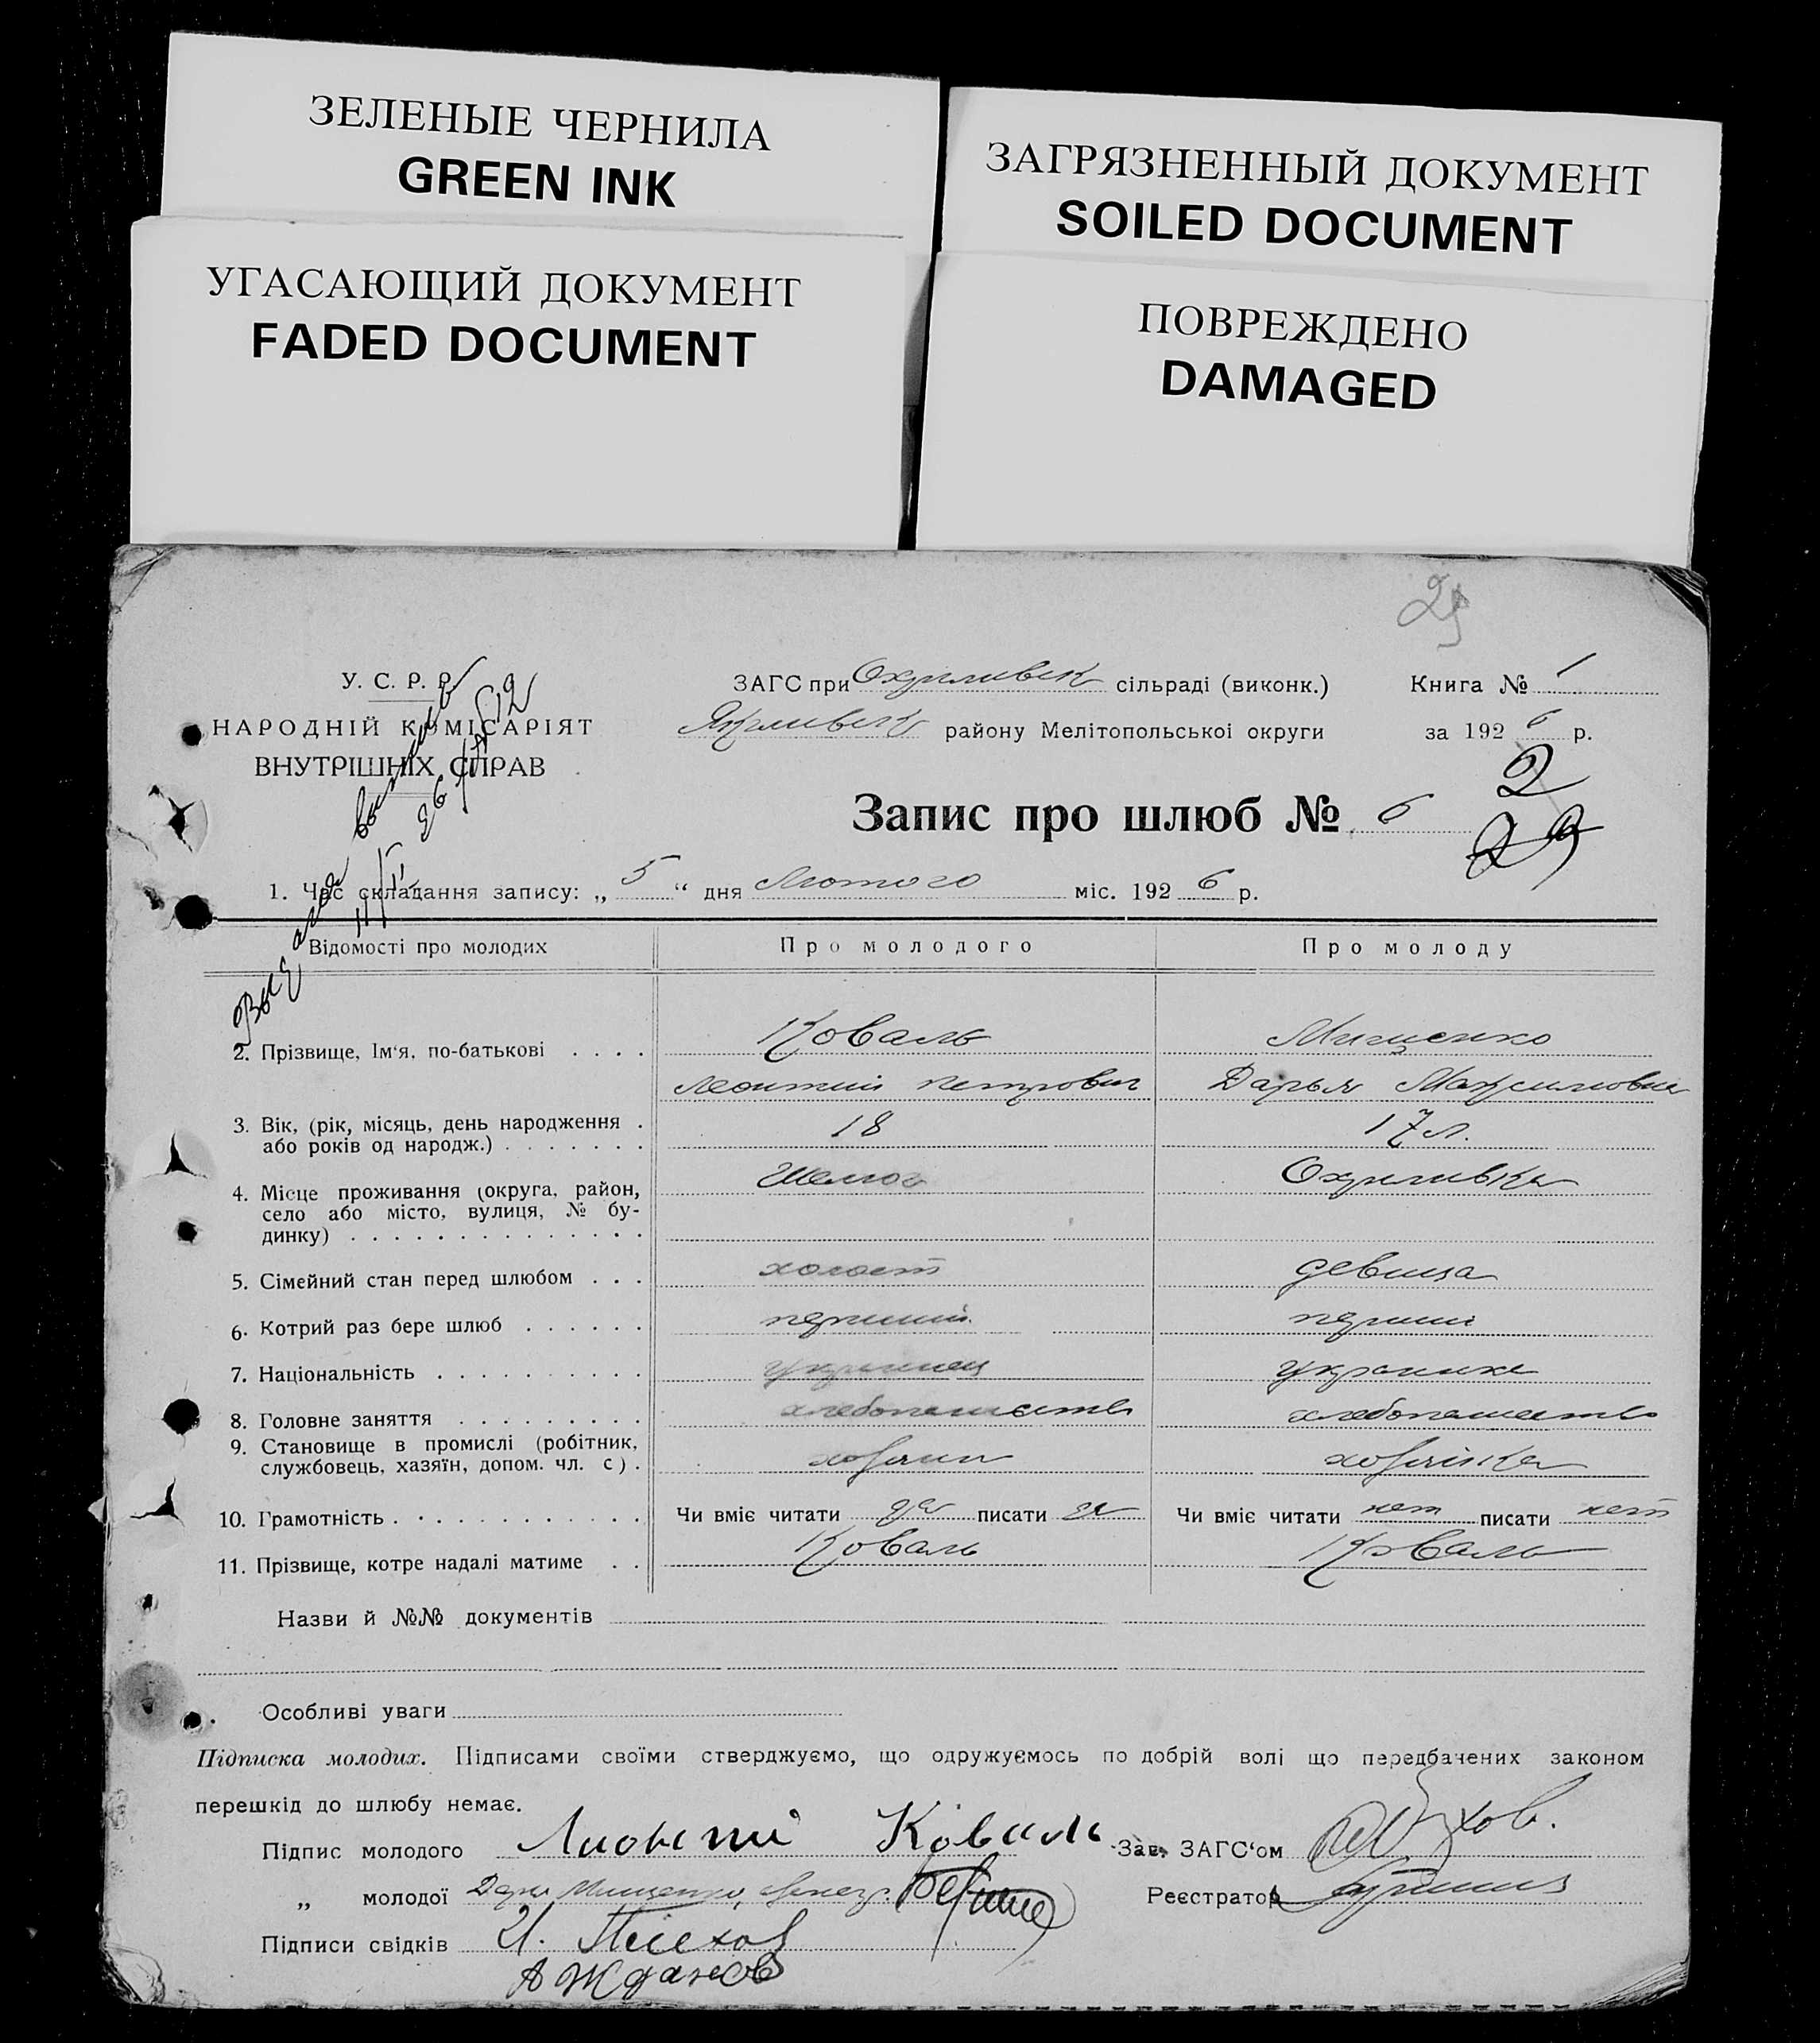 ЗЕЛЕНЫЕ ЧЕРНИЛА
GREEN INK
ЗАГРЯЗНЕННЫЙ ДОКУМЕНТ
SOILED DOCUMENT
УГАСАЮЩИЙ ДОКУМЕНТ
FADED DOCUMENT
ПОВРЕЖДЕНО
DAMAGED
У. С. Р. Р.
НАРОДНІЙ КОМІСАРІЯТ
ВНУТРІШНІХ СПРАВ
ЗАГС при сільраді (виконк.) Книга № 1
району Мелітопольської округи за 1926 р.
2
Запис про шлюб № 6
29
1. Час складання запису: „5“ дня Лютого міс. 1926 р.
Відомості про молодих Про молодого Про молоду
2. Прізвище, Ім‘я, по-батькові . . . . Коваль Мищенко
Леонтий Петрович Дарья Максимовна
3. Вік, (рік, місяць, день народження . 18 17 л.
або років од народж.) . . . . . . .
4. Місце проживання (округа, район, Охримівка
село або місто, вулиця, № бу-
динку) . . . . . . . . . . . . . .
5. Сімейний стан перед шлюбом . . . холост девица
6. Котрий раз бере шлюб . . . . . . перший перший
7. Національність . . . . . . . . . . украинец украинка
8. Головне заняття . . . . . . . . . хлебопашество хлебопашество
9. Становище в промислі (робітник, хозяин хозяйка
службовець, хазяїн, допом. чл. с) .
10. Грамотність . . . . . . . . . . . Чи вміє читати да писати да Чи вміє читати нет писати нет
11. Прізвище, котре надалі матиме . . Коваль Коваль
Назви й №№ документів
Особливі уваги
Підписка молодих. Підписами своїми стверджуємо, що одружуємось по добрій волі що передбачених законом
перешкід до шлюбу немає.
Підпис молодого Коваль Зав. ЗАГС‘ом
„ молодої Мищенко Реєстратор
Підписи свідків
А Жданов